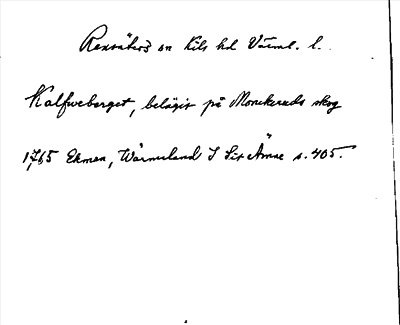 Ransäters sn Kils hd Värml. l.
Kalfweberget, belägit på Munkeruds skog
1765 Ekman, Wärmeland I Sit Ämne s. 405.